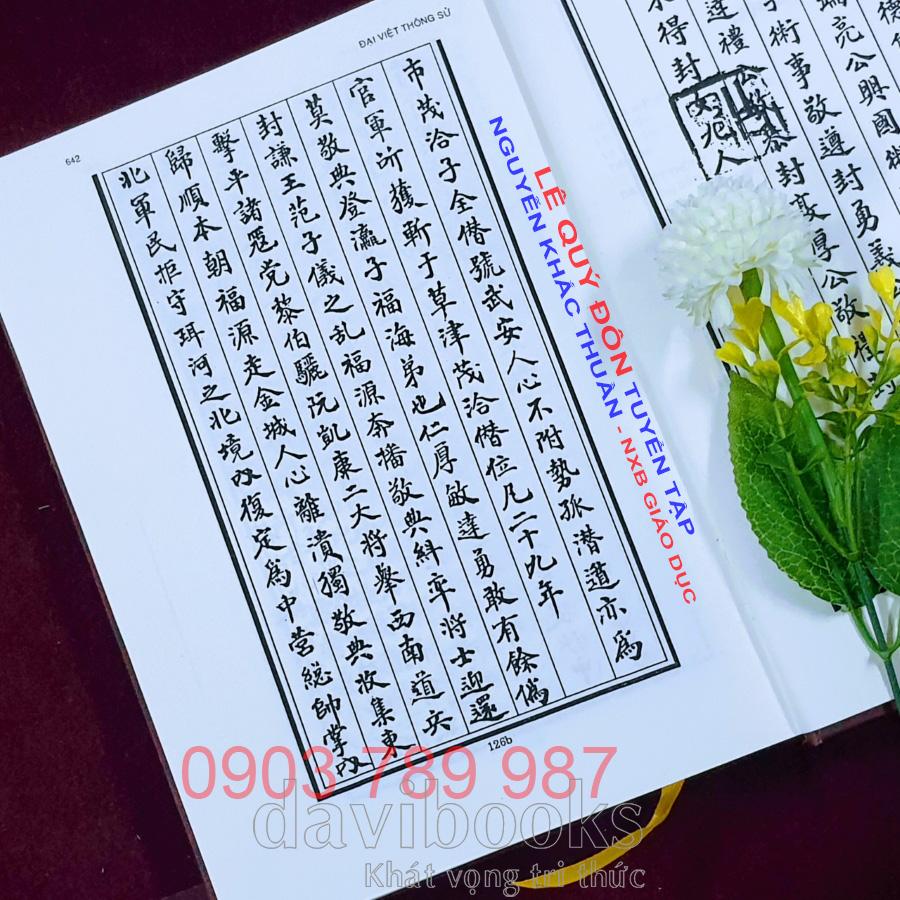 ĐẠI VIỆT THÔNG SỬ
642
市茂洽子全僣號武安人心不附勢孤潜遁亦爲
官軍所獲斬于草津茂洽僣位凡二十九年
莫敬典登瀛子福海弟也仁厚敏達勇敢有餘僞
封謙王范子儀之乱福源奔播敬典糾率將士迎還
擊平諸寇党黎伯驪阮凱康二大將舉西南道兵
歸順本朝福源走金城人心離潰獨敬典收集東
北軍民拒守珥河之北境以復定爲中營総帥掌以
126b
德
端亮公興國
術事敬遵封勇義公
達禮公敬
得封
人
封
厚公敬
LÊ QUÝ ĐÔN TUYỂN TẬP
NGUYỄN KHẮC THUẦN - NXB GIÁO DỤC
0903 789 987
davibooks
Khát vọng tri thức